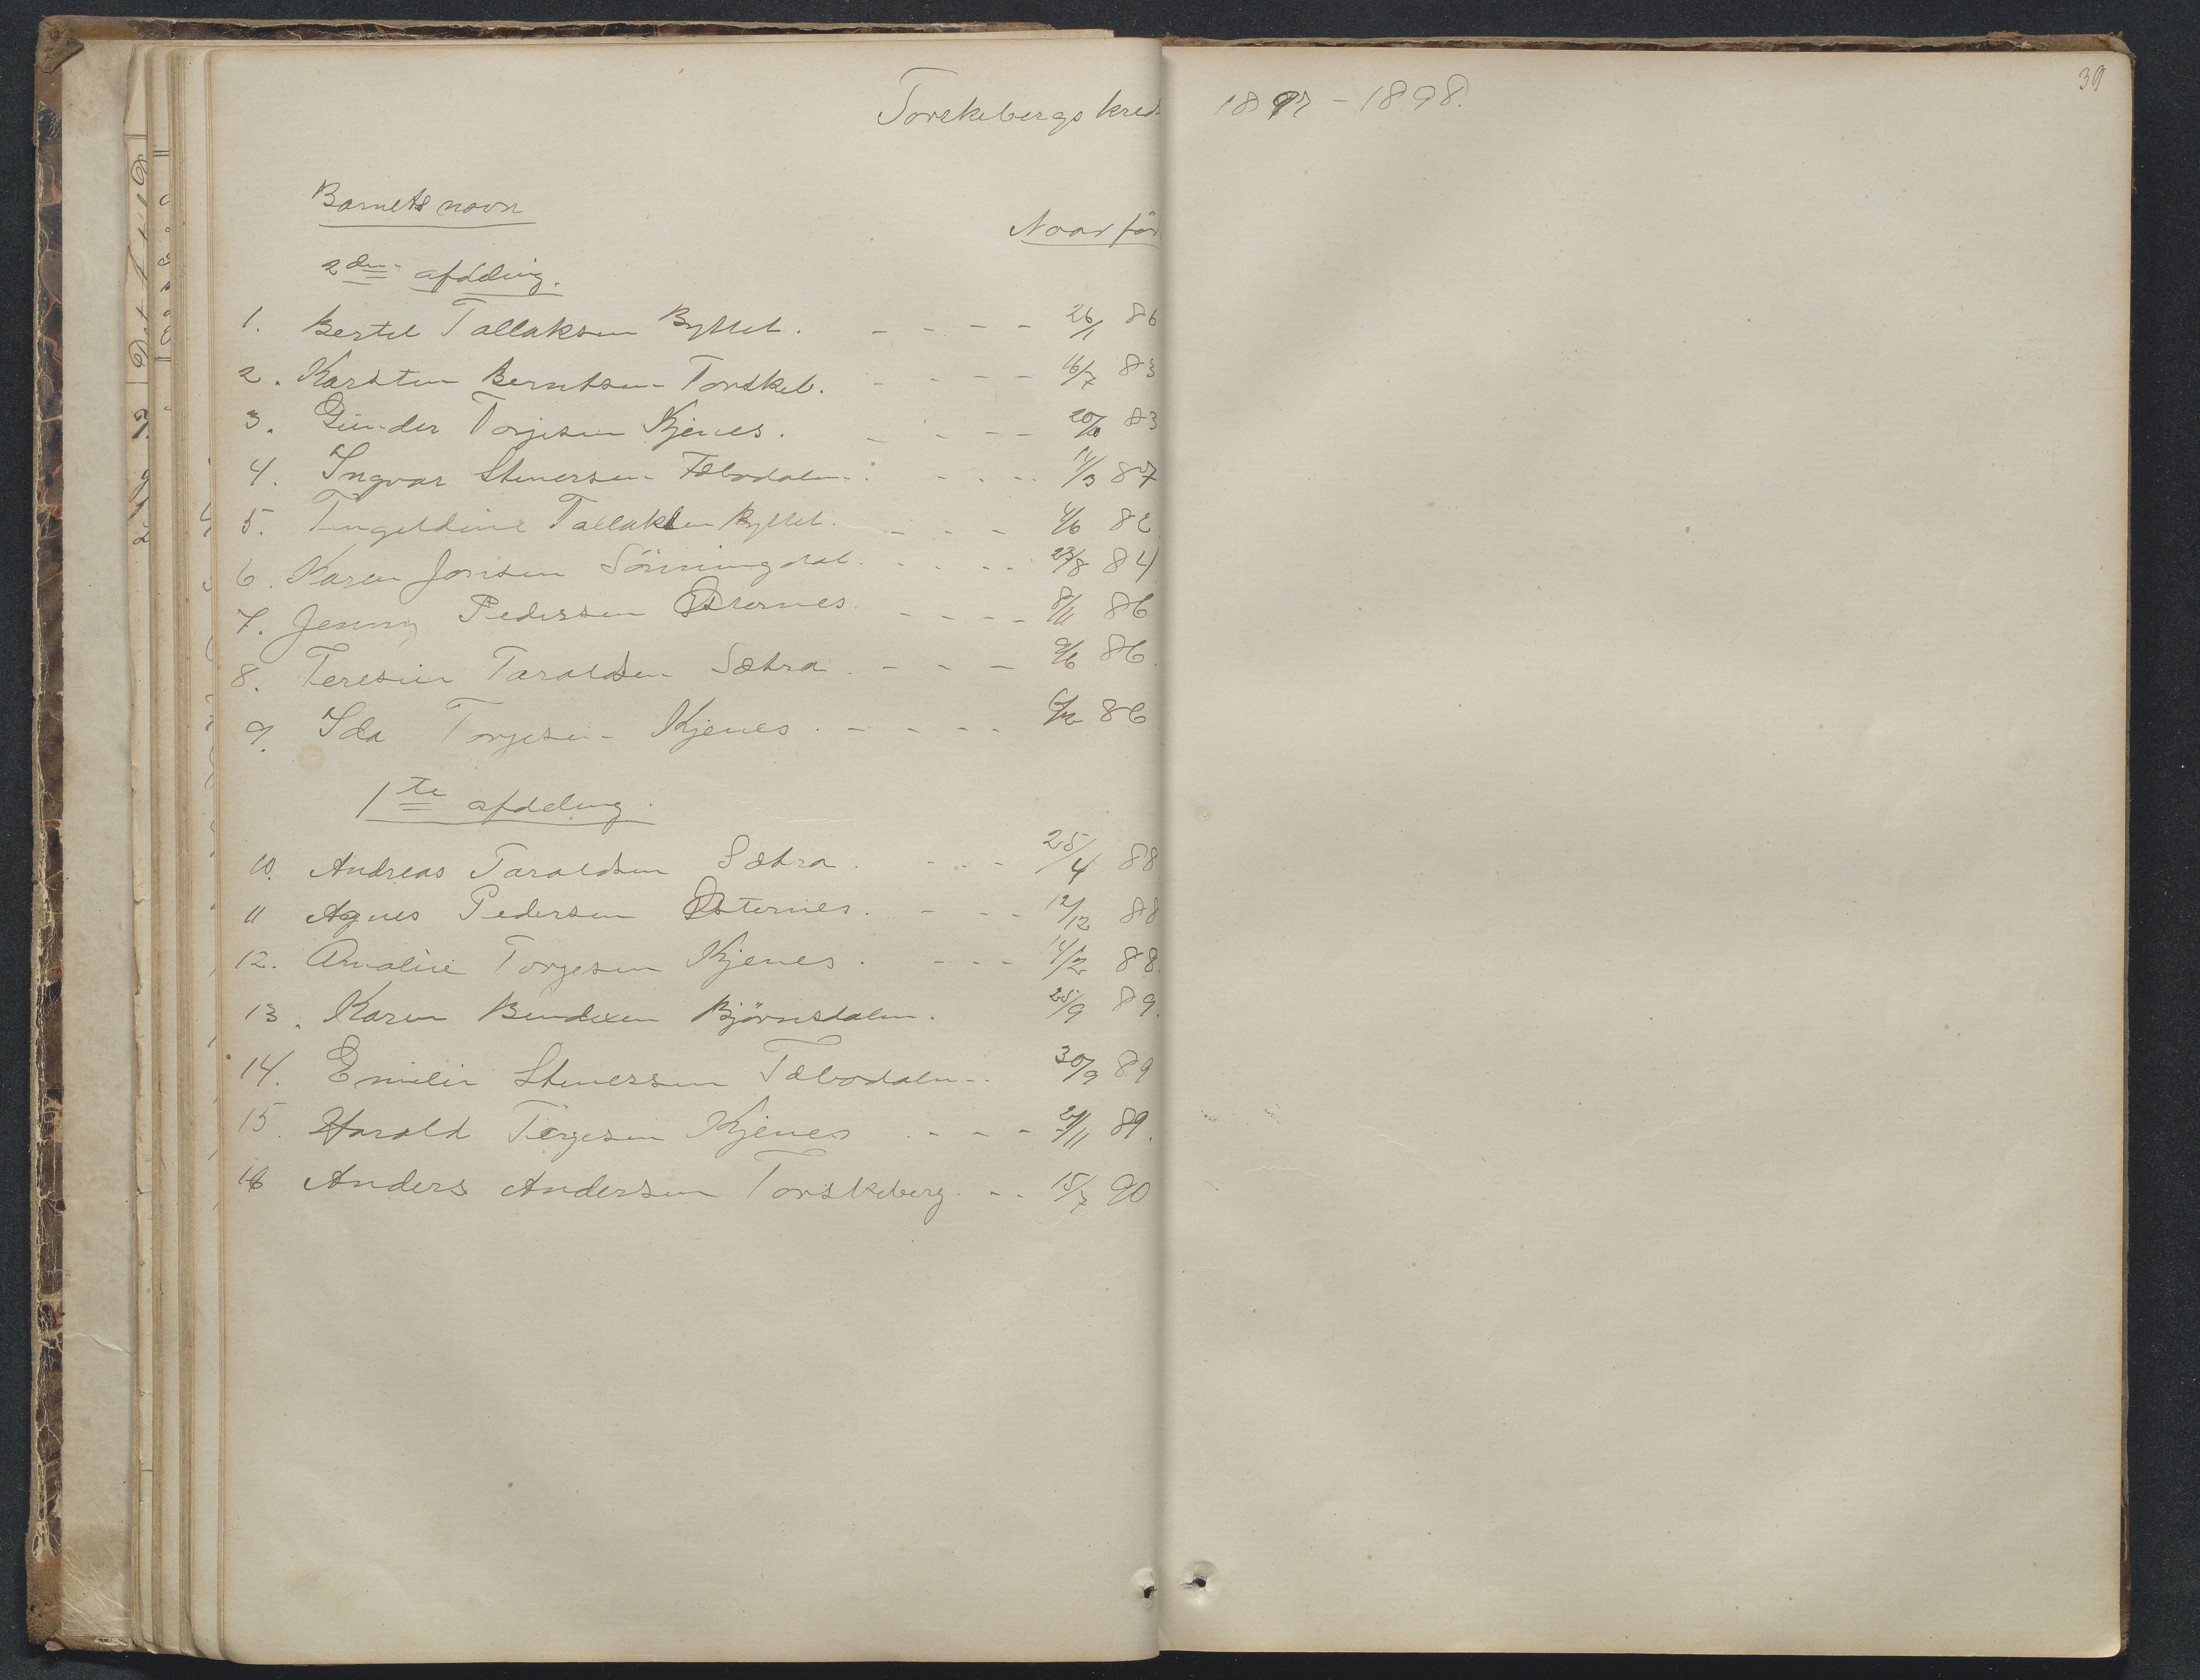 39
Torskebergs kreds 1897 - 1898.
Barnets navn
Naar föd
2den afdeling.
1. Bertel Tallaksen Byttel. - - - - 26/1 86
2. Karsten Berntsen Torskeb. - - - - 16/7 83
3. Gunder Torjesen Kjenes. - - - - 20/10 83
4. Ingvar Stenersen Fæbodalen. - - - - 14/3 87
5. Tallaksen Byttel. - - - 4/6 82
6. Karen Jonsen Sönningdal. - - - - 23/8 84
7. Jenny Pedersen Østernes. - - - - 8/11 86
8. Teresie Taraldsen Sætra. - - - 9/6 86.
9. Ida Torjesen Kjenes. - - - - 6/12 86
1te afdeling.
10. Andreas Taraldsen Sætra. - - - 25/4 88
11 Agnes Pedersen Østernes. - - - 12/12 88
12. Amalie Torjesen Kjenes. - - - 14/2 88.
13. Karen Bendixen Björnsdalen. 25/9 89.
14. Emilie Stenersen Fæbodalen. 30/9 89
15. Harald Torjesen Kjenes. - - - 21/11 89.
16 Anders Andersen Torskeberg. - - 15/7 90